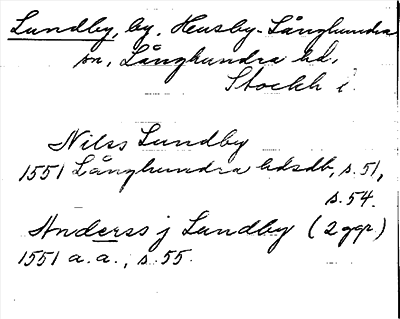 Lundby, by, Husby-Långhundra
sn, Långhundra hd,
Stockh l.
Nilss Lundby
1551 Långhundra hdsdb, s. 51,
s. 54.
Anderss j Lundby (2 ggr)
1551 a.a., s. 55.